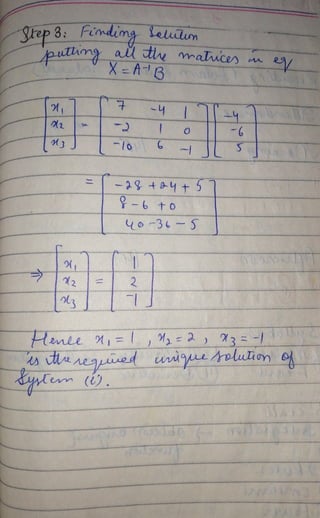 Step 3: Finding Solution
putting all the matrices in eq
X = A⁻¹B
[x₁ x₂ x₃] = [7 -4 1; -2 1 0; -10 6 -1] [-4 -6 5]
= [-28 + 24 + 5; 8 - 6 + 0; 40 - 36 - 5]
⇒ [x₁ x₂ x₃] = [1 2 -1]
Hence x₁ = 1, x₂ = 2, x₃ = -1
is the required unique solution of
System (i).